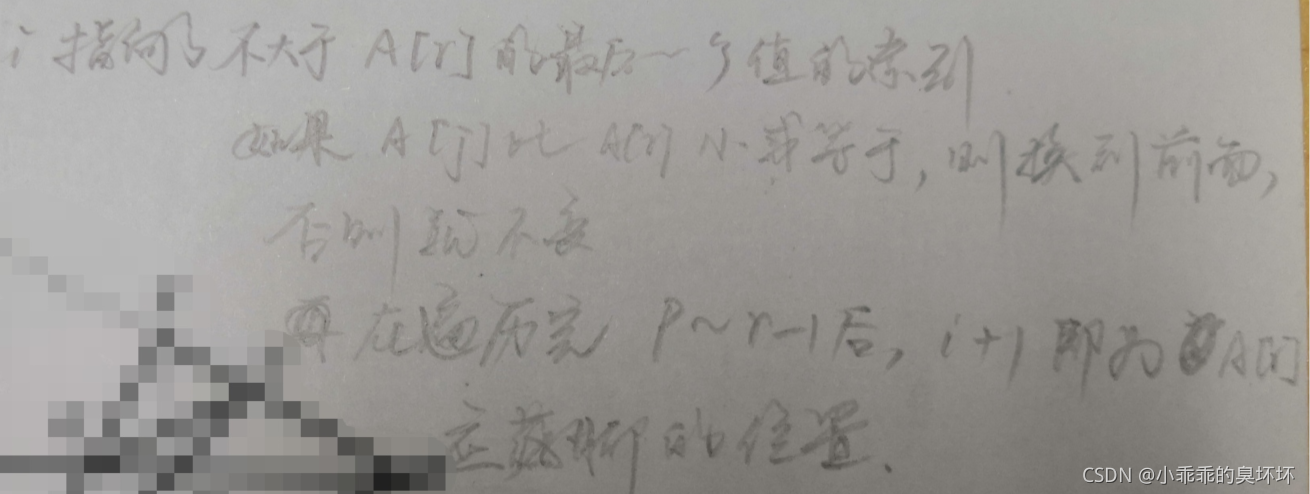 i 指向了不大于 A[r] 的最后一个值的索引
如果 A[j] 比 A[r] 小或等于,则换到前面,
否则 不变
在遍历完 p~r-1后, i+1 即为 A[r]
应落脚的位置.
CSDN @小乖乖的臭坏坏